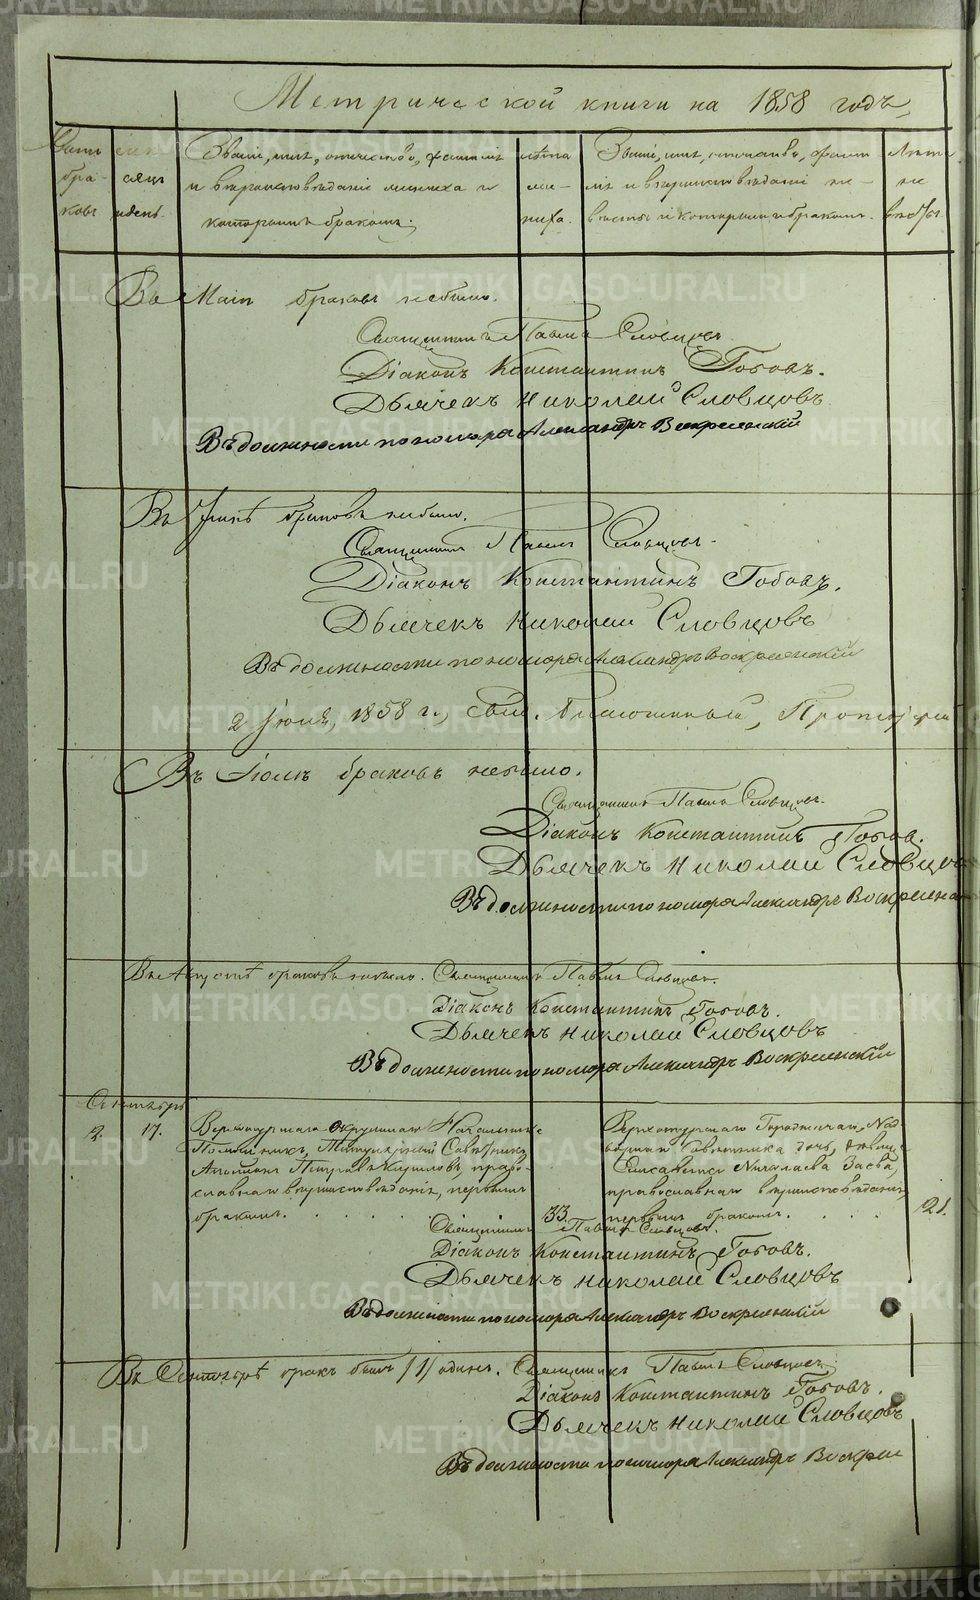 Метрической книги на 1858 годъ,
Счетъ бра- ковъ
мѣсяцъ и день.
Званіе, имя, отчество, фамилія и вѣроисповѣданіе жениха и которымъ бракомъ.
лѣта же- ниха.
Званіе, имя, отчество, фами- лія и вѣроисповѣданіе не- вѣсты и которымъ бракомъ.
Лѣта не- вѣсты.
Въ Маіи браковъ небыло.
Священникъ Павелъ Словцовъ.
Діаконъ Константинъ Гобовъ.
Дьячекъ Николай Словцовъ
Въ должности пономаря Александръ Воскресенскій
Въ Іюнѣ браковъ небыло.
Священникъ Павелъ Словцовъ.
Діаконъ Константинъ Гобовъ.
Дьячекъ Николай Словцовъ
Въ должности пономаря Александръ Воскресенскій
2 Іюля, 1858 г.,
Въ Іюлѣ браковъ небыло.
Священникъ Павелъ Словцовъ.
Діаконъ Константинъ Гобовъ.
Дьячекъ Николай Словцов
Въ должности пономаря Александръ Воскресенс
Въ Августѣ браковъ небыло. Священникъ Павелъ Словцовъ.
Діаконъ Константинъ Гобовъ.
Дьячекъ Николай Словцовъ
Въ должности пономаря Александръ Воскресенскій
Сентябрь
2. 17.
Верхотурскаго Окружнаго Начальника
Помощникъ, Титулярный Совѣтникъ
Петровъ Кириловъ, право-
славнаго вѣроисповѣданія, первымъ
бракомъ. 33.
Верхотурскаго Городничаго, Над-
ворнаго Совѣтника дочь, дѣвица
Елисавета Николаева
православнаго вѣроисповѣданія,
первымъ бракомъ. 21.
Священникъ Павелъ Словцовъ.
Діаконъ Константинъ Гобовъ.
Дьячекъ Николай Словцовъ
Въ должности пономаря Александръ Воскресенскій
Въ Сентябрѣ бракъ былъ /1/ одинъ. Священникъ Павелъ Словцовъ.
Діаконъ Константинъ Гобовъ.
Дьячекъ Николай Словцовъ
Въ должности пономаря Александръ Воскрес
METRIKI.GASO-URAL.RU